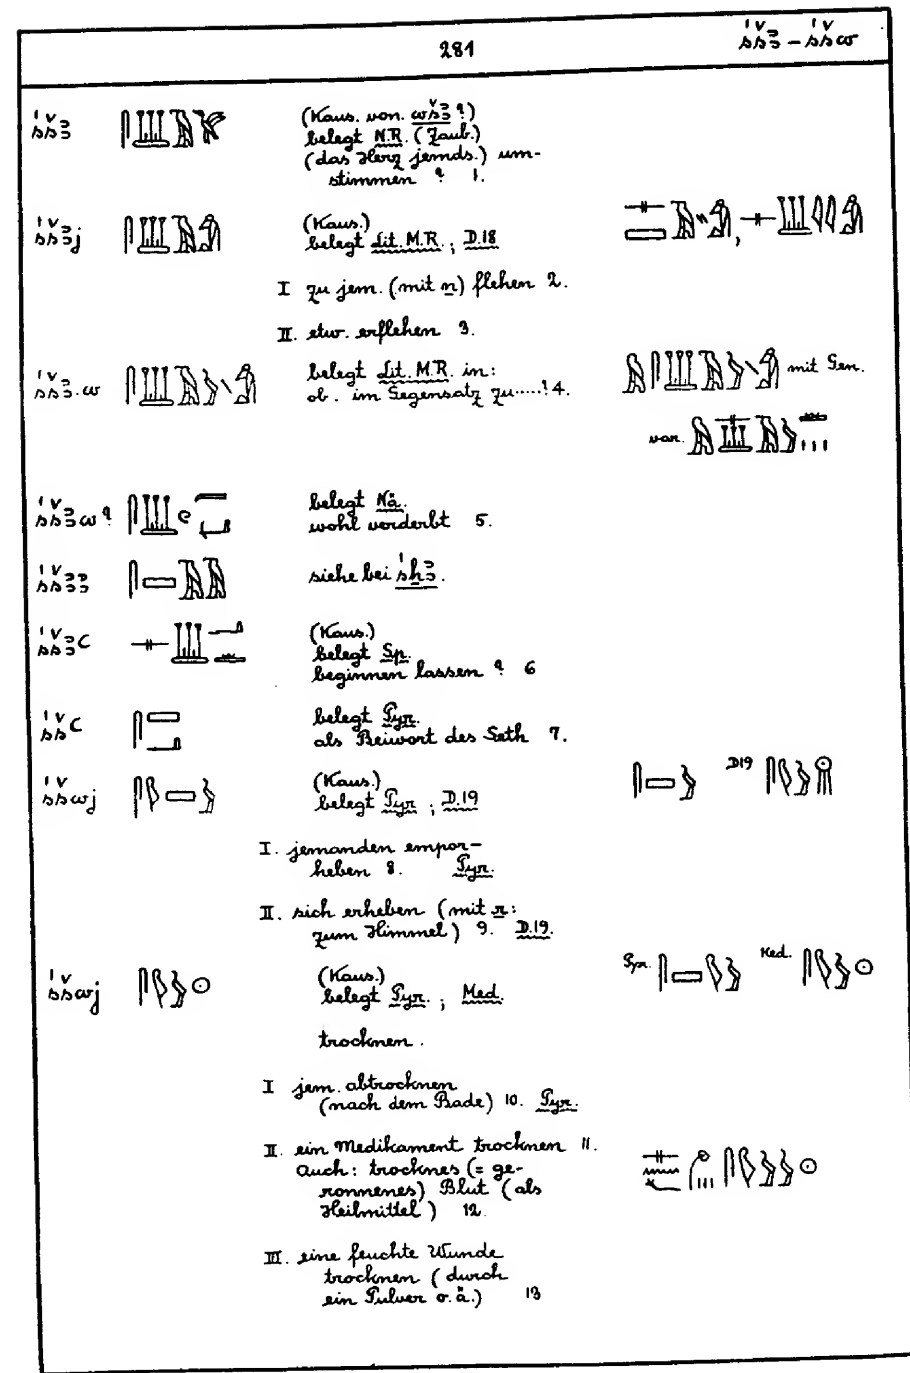 281
śšꜣ – śšw
śšꜣ (Kaus. von wšꜣ ?)
belegt N.R. (Zaub.)
(das Herz jemds.) um-
stimmen ? 1.
śšꜣj (Kaus.)
belegt Lit. M.R. ; D.18
I zu jem. (mit n) flehen 2.
II. etw. erflehen 3.
śšꜣ.w belegt Lit. M.R. in: mit Gen.
ob. im Gegensatz zu.....? 4.
var.
śšꜣw ? belegt Nä.
wohl verderbt 5.
śšꜣꜣ siehe bei śẖꜣ.
śšꜣꜥ (Kaus.)
belegt Sp.
beginnen lassen ? 6
śšꜥ belegt Pyr.
als Beiwort des Seth 7.
śšwj (Kaus.) D19
belegt Pyr ; D.19
I. jemanden empor-
heben 8. Pyr.
II. sich erheben (mit r:
zum Himmel) 9. D.19.
śšwj (Kaus.) Pyr. Med.
belegt Pyr. ; Med.
trocknen.
I jem. abtrocknen
(nach dem Bade) 10. Pyr.
II. ein Medikament trocknen 11.
auch: trocknes (= ge-
ronnenes) Blut (als
Heilmittel) 12.
III. eine feuchte Wunde
trocknen (durch
ein Pulver o. ä.) 13